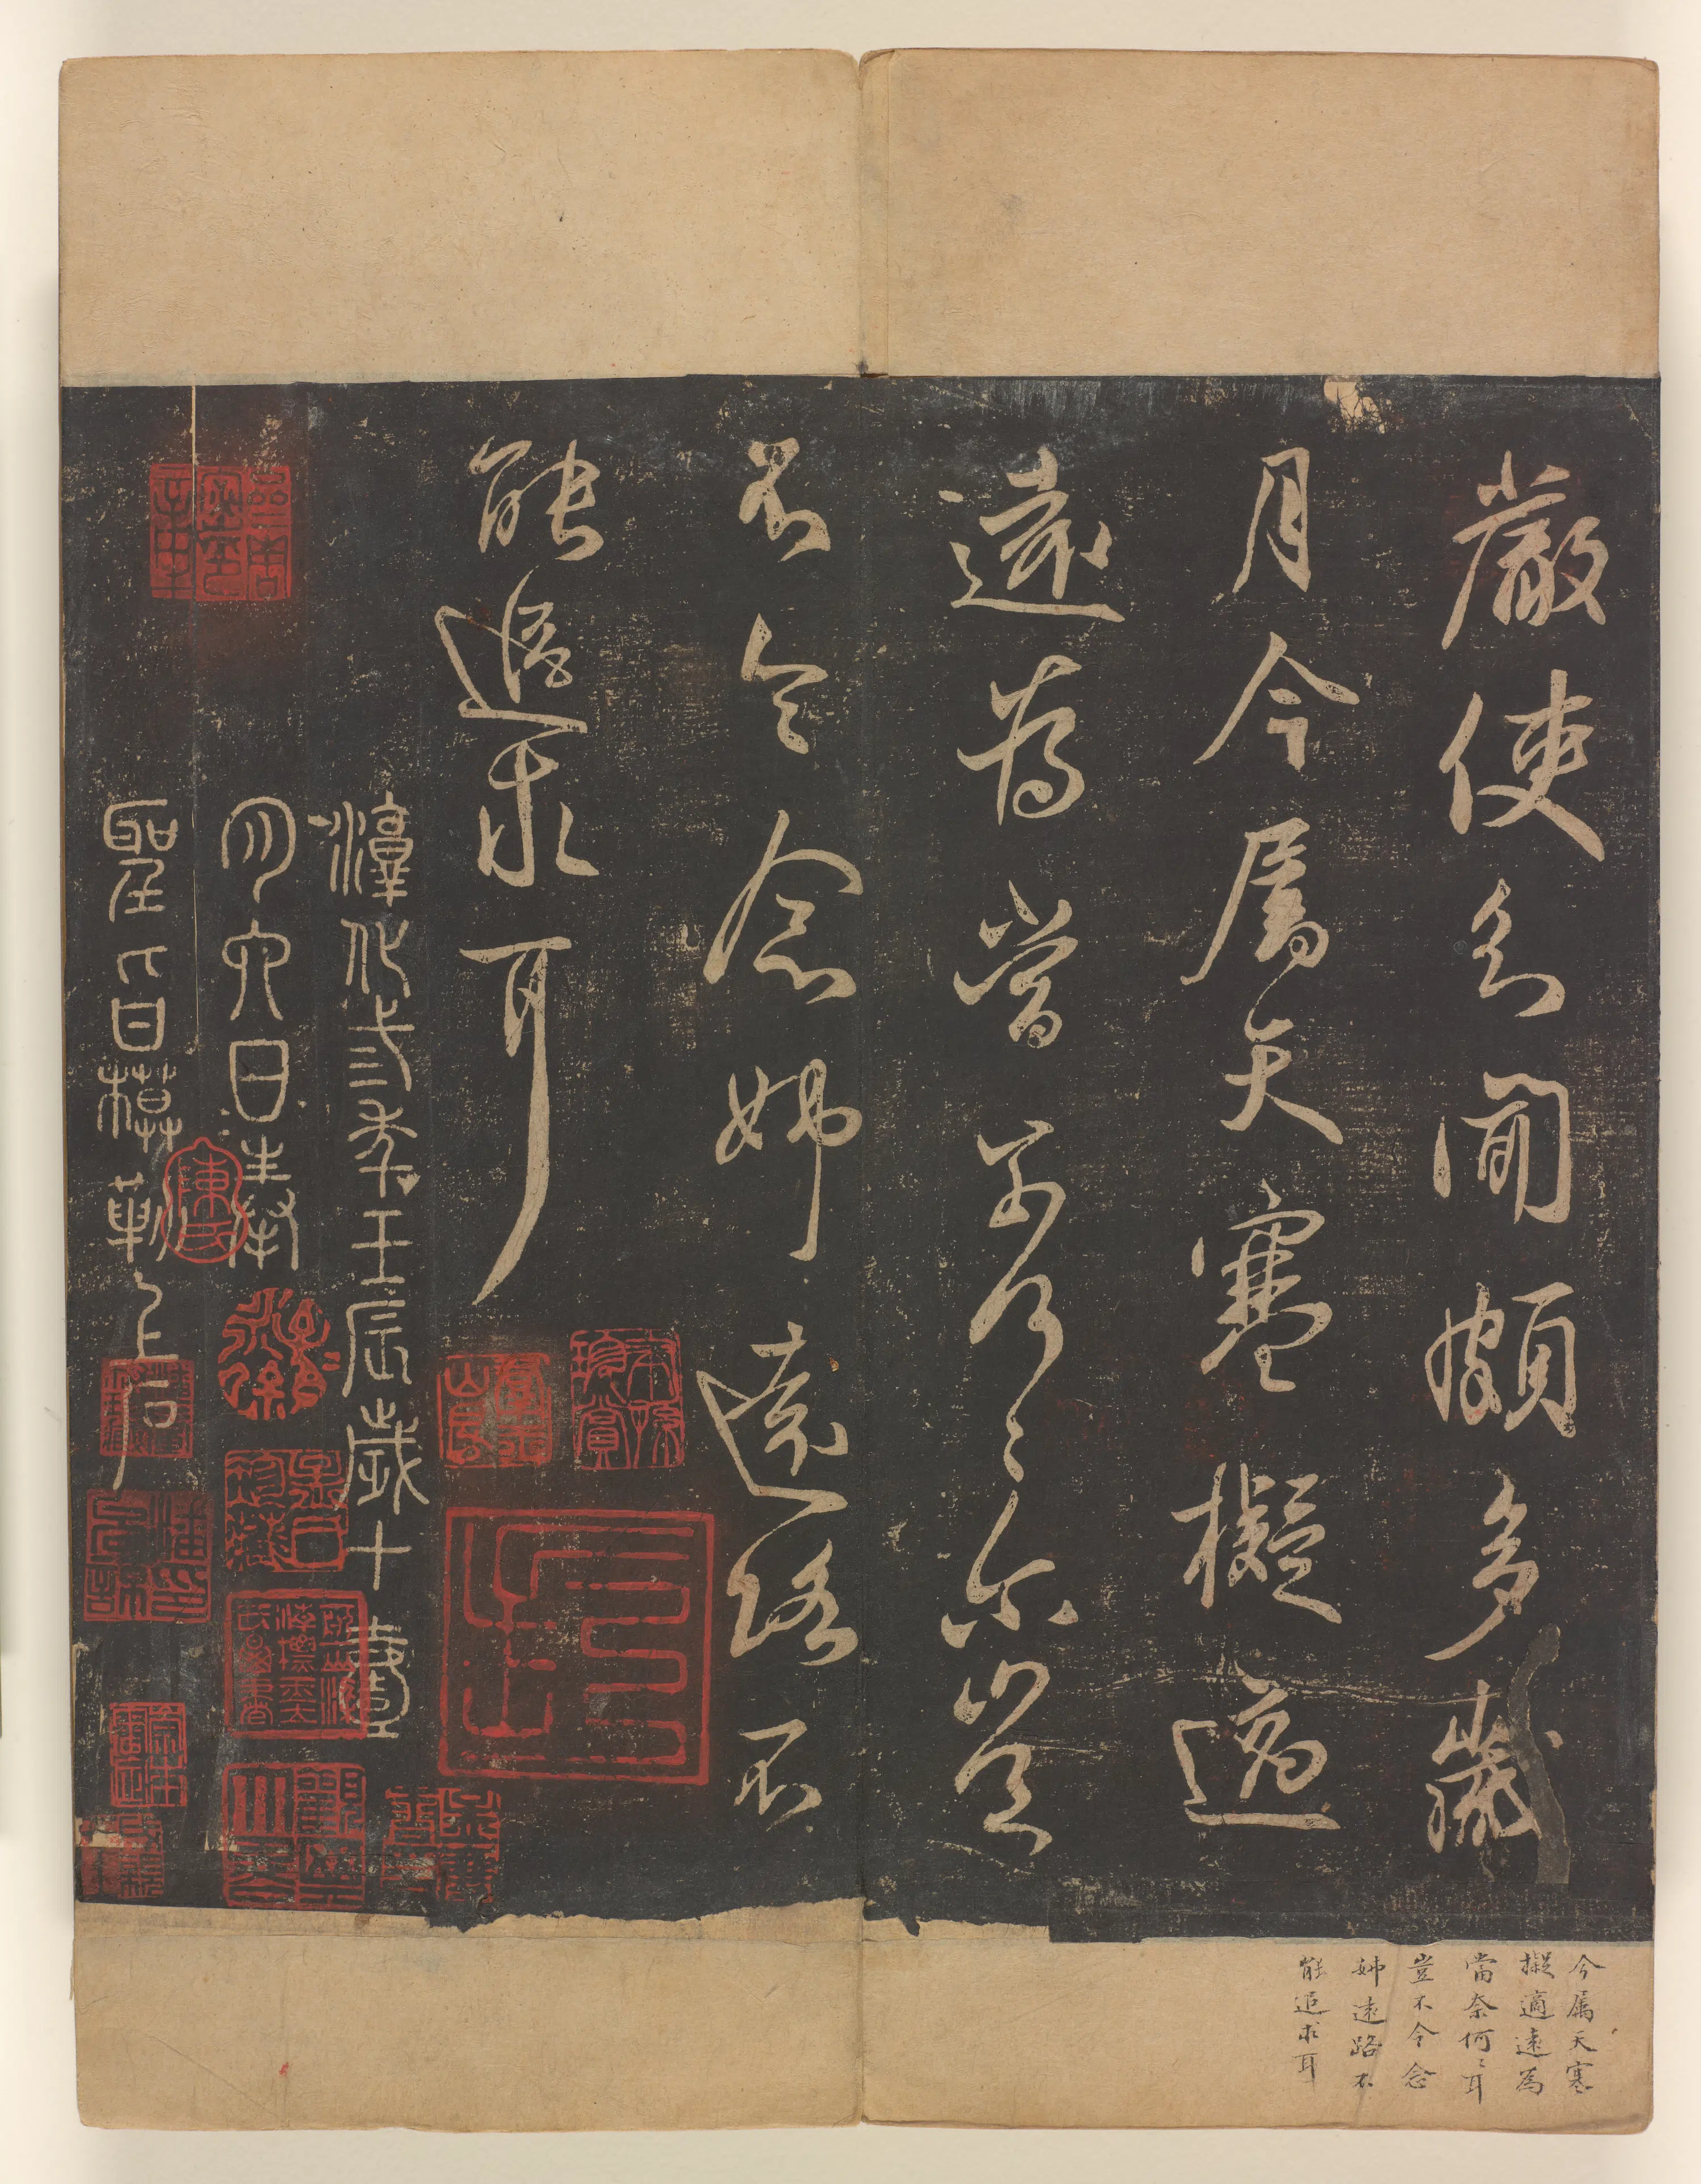 嚴使君閒頗多歲
月今屬天寒擬適
遠為當奈何〻尔豈
不令念姊遠路不
能追求耳
淳化弎年壬辰歲十壹
月六日奉
聖旨模勒上石
今属天寒
擬適遠為
當奈何〻耳
豈不令念
姊遠路不
能追求耳